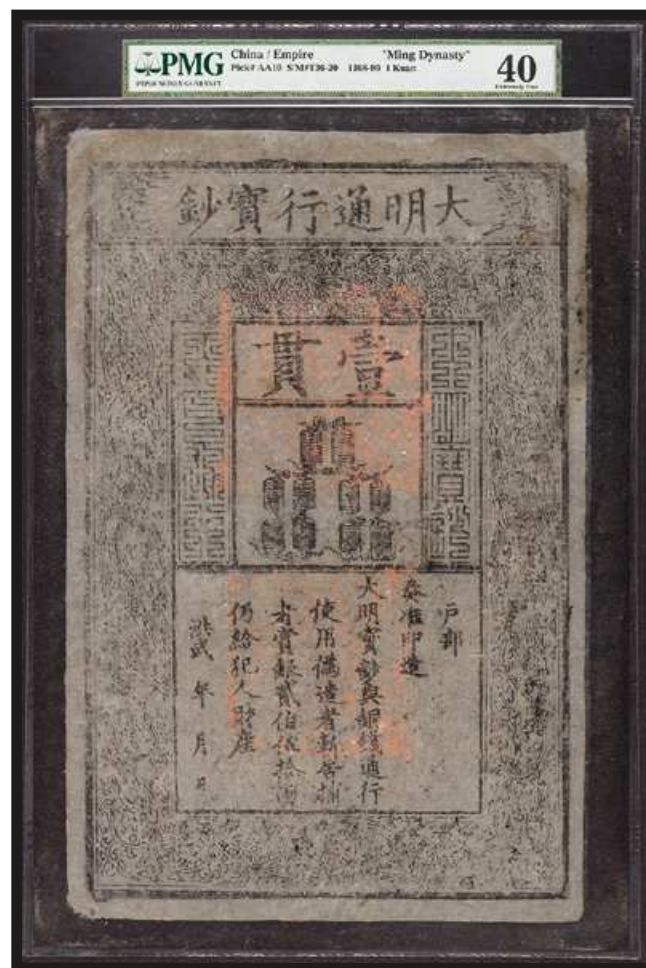 PMG
PAPER MONEY GUARANTY
China / Empire "Ming Dynasty"
Pick# AA10 S/M#T36-20 1368-99 1 Kuan
40
Extremely Fine
大明通行寶鈔
壹貫
大明寶鈔
天下通行
戶部
奏准印造
大明寶鈔與銅錢通行
使用偽造者斬告捕
者賞銀貳伯伍拾兩
仍給犯人財產
洪武 年 月 日